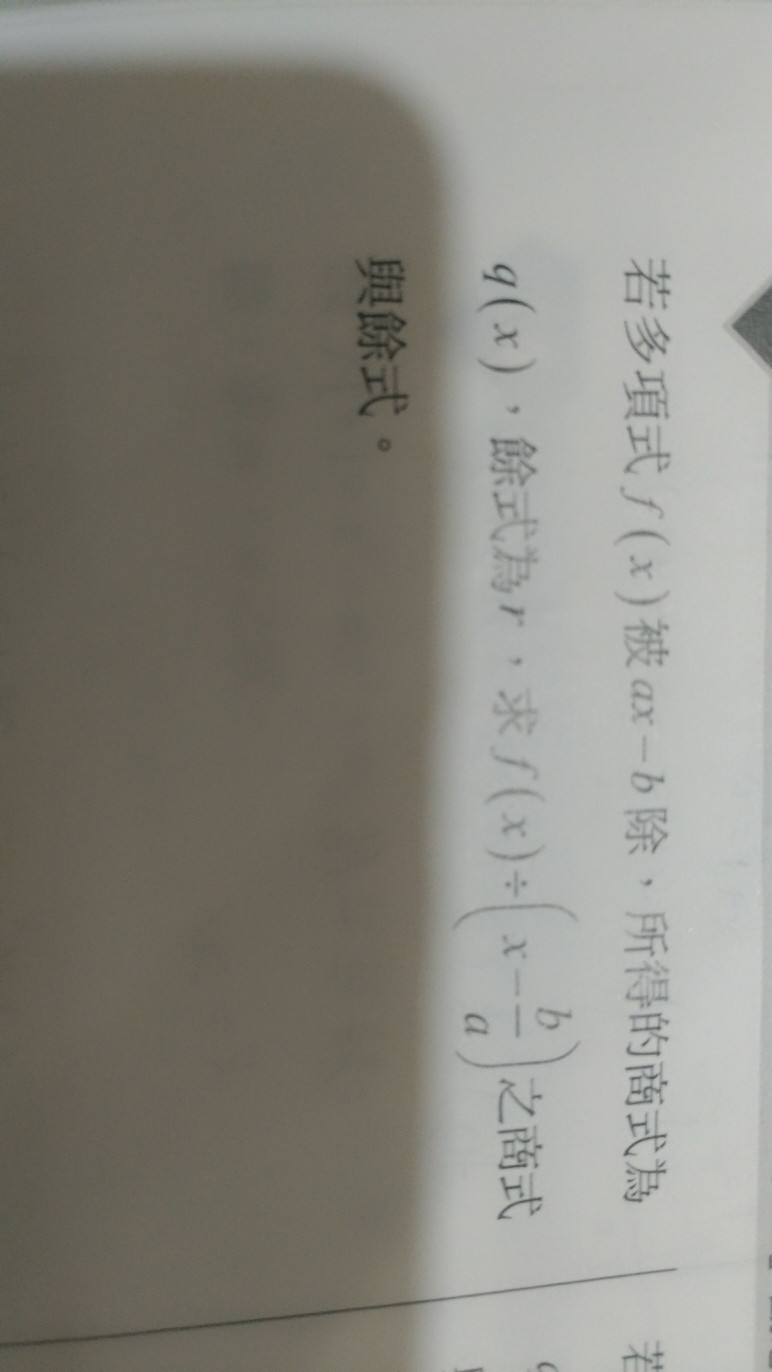 若多項式 f(x) 被 ax−b 除，所得的商式為
q(x)，餘式為 r，求 f(x)÷(x−b/a) 之商式
與餘式。
若